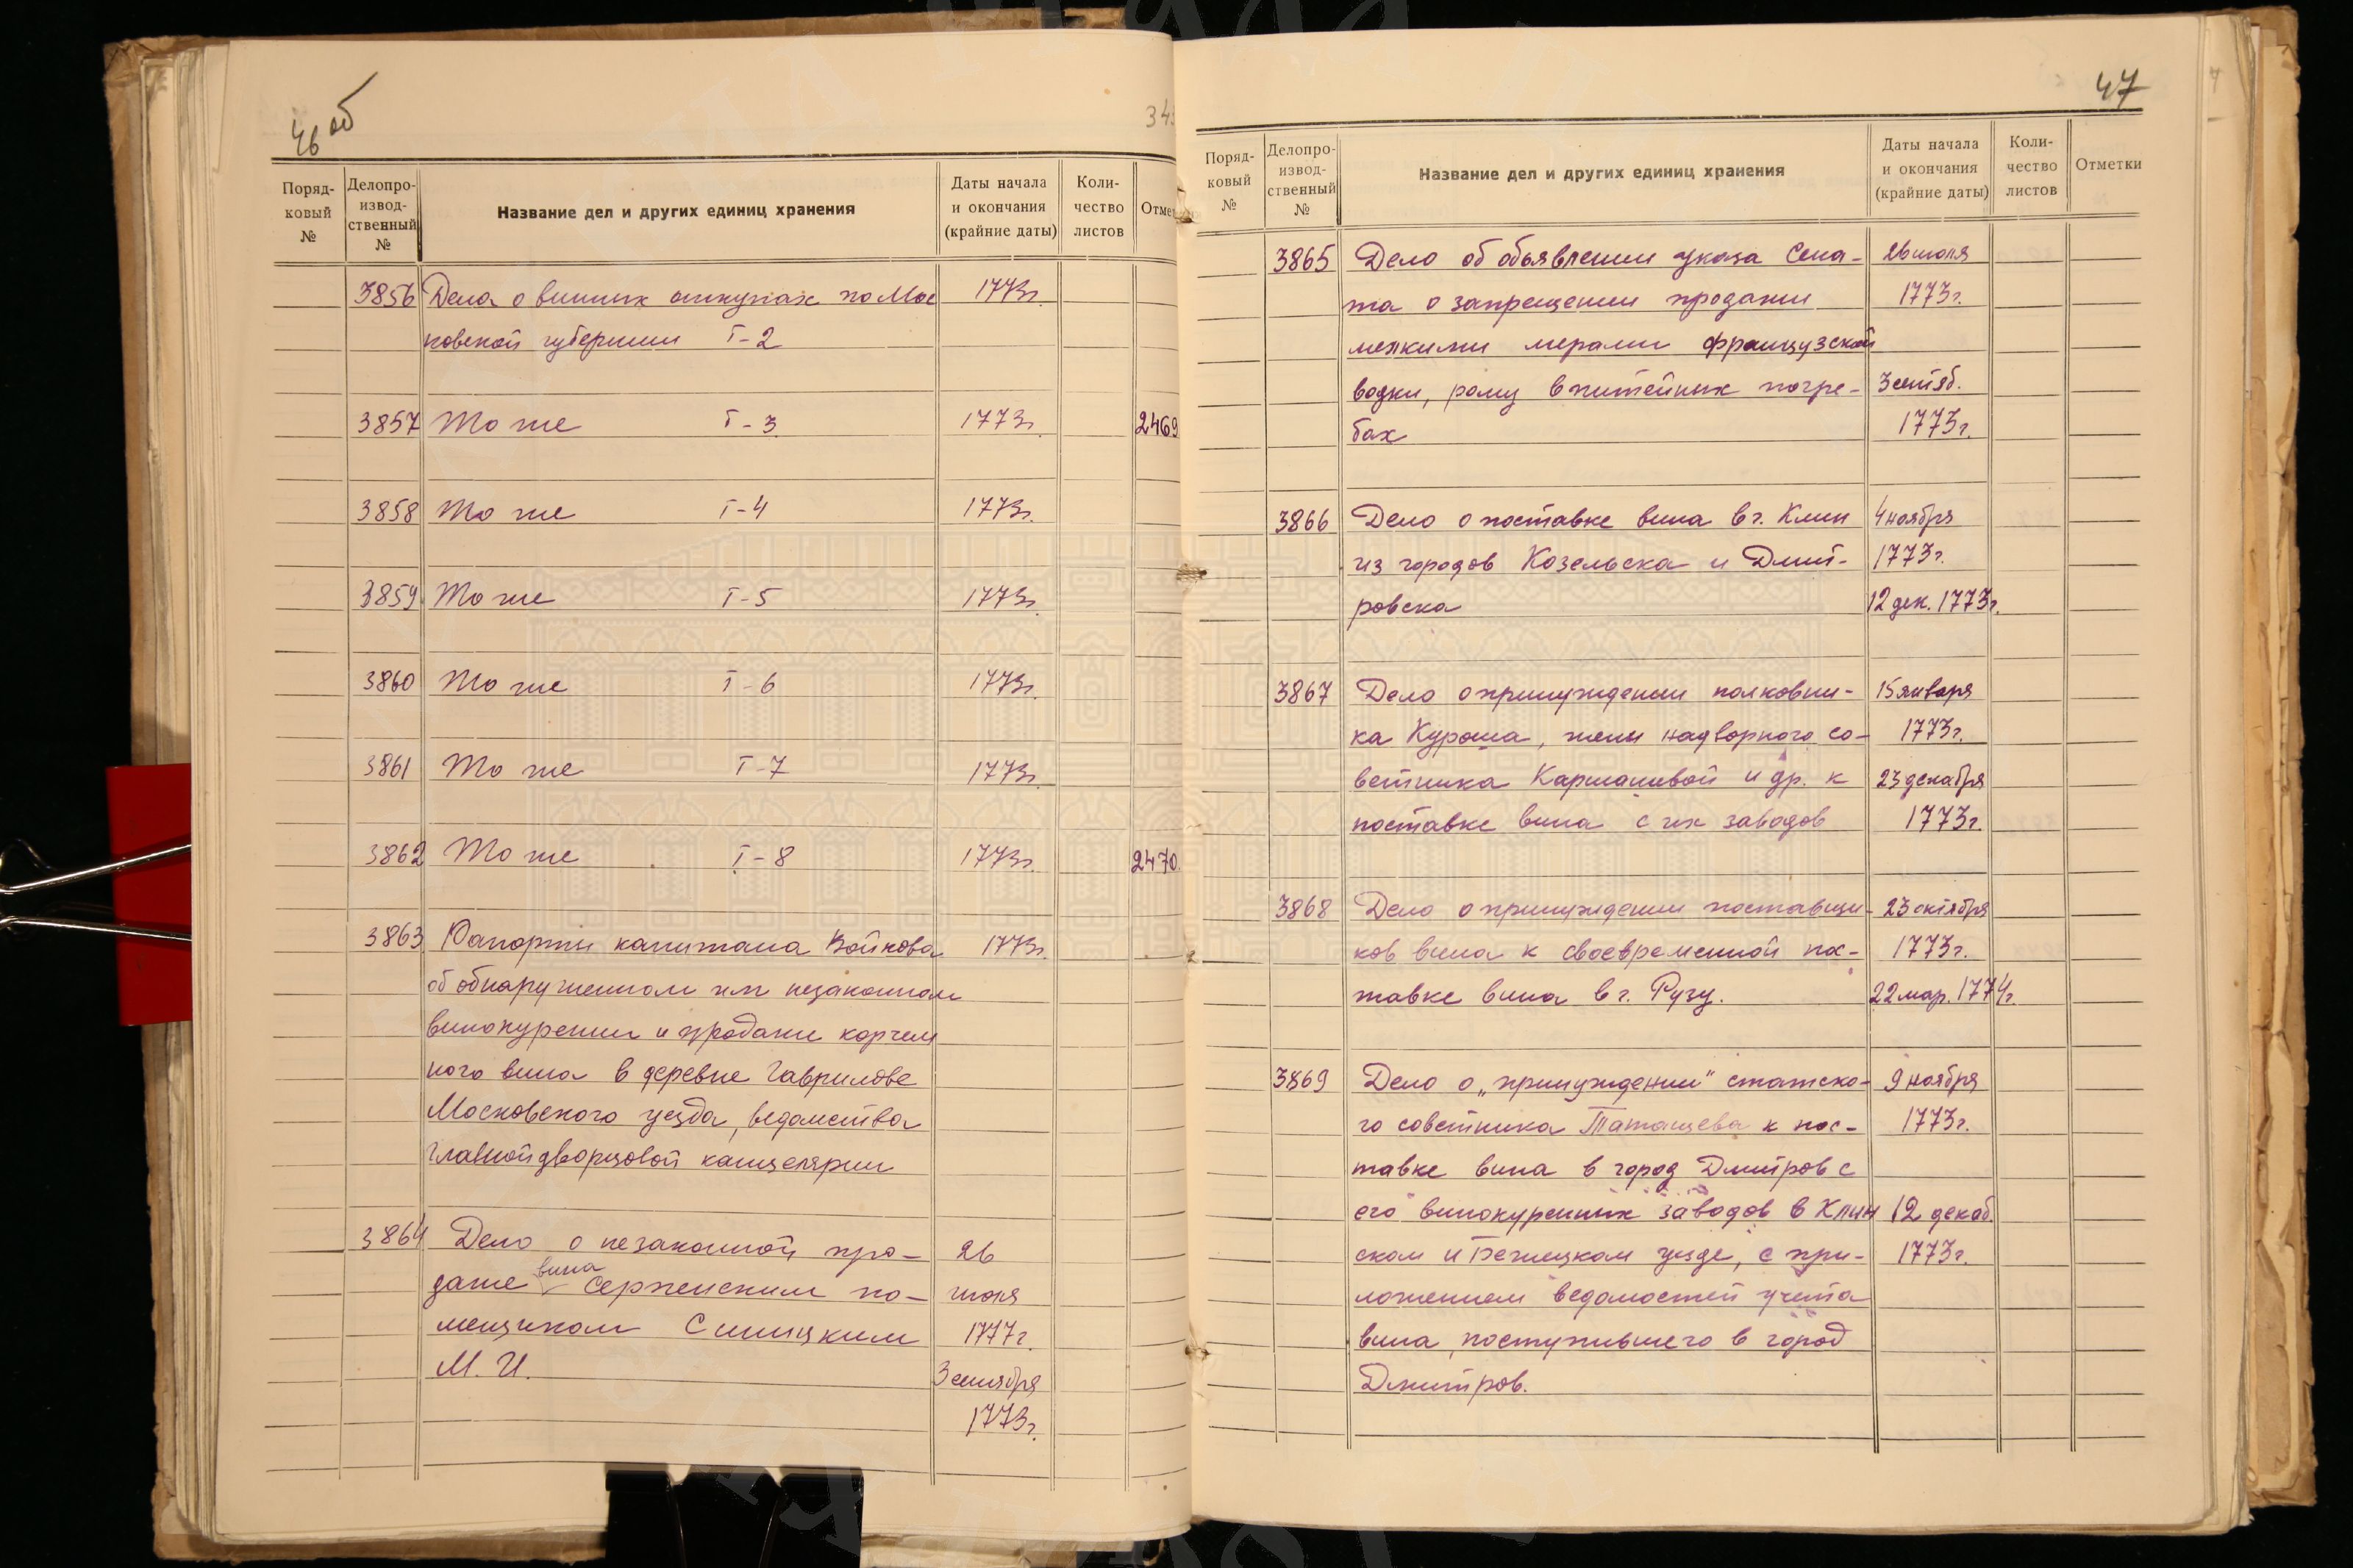 46 об
Поряд-
ковый
№
Делопро-
извод-
ственный
№
Название дел и других единиц хранения
Даты начала
и окончания
(крайние даты)
Коли-
чество
листов
3856 Дела о винных откупах по Мос 1773г.
ковской губернии Т-2
3857 То же Т-3 1773г. 2469
3858 То же Т-4 1773г.
3859 То же Т-5 1773г.
3860 То же Т-6 1773г.
3861 То же Т-7 1773г.
3862 То же Т-8 1773г. 2470
3863 Рапорты капитана Войкова 1773г.
об обнаруженном им незаконном
винокурении и продаже корчем
ного вина в деревне Гаврилове
Московского уезда, ведомства
Главной дворцовой канцелярии
3864 Дело о незаконной про- 26
даже вина Серпейским по- июля
мещиком Синицким 1777г.
М. И. 3 сентября
1773г.
47
Поряд-
ковый
№
Делопро-
извод-
ственный
№
Название дел и других единиц хранения
Даты начала
и окончания
(крайние даты)
Коли-
чество
листов
Отметки
3865 Дело об объявлении указа Сена- 26 июля
та о запрещении продажи 1773г.
мелкими мерами французской
водки, рому в питейных погре- 3 сентяб.
бах 1773г.
3866 Дело о поставке вина в г. Клин 4 ноября
из городов Козельска и Дмит- 1773г.
ровска 12 дек. 1773г.
3867 Дело о принуждении полковни- 15 января
ка Куроша, жены надворного со- 1773г.
ветника и др. к 23 декабря
поставке вина с их заводов 1773г.
3868 Дело о принуждении поставщи- 23 октября
ков вина к своевременной пос- 1773г.
тавке вина в г. Рузу. 22 мар. 1774г.
3869 Дело о „принуждении“ статско- 9 ноября
го советника Татащева к пос- 1773г.
тавке вина в город Дмитров с
его винокуренных заводов в Клин 12 декаб.
ском и Бежецком уезде, с при- 1773г.
ложением ведомостей учета
вина, поступившего в город
Дмитров.